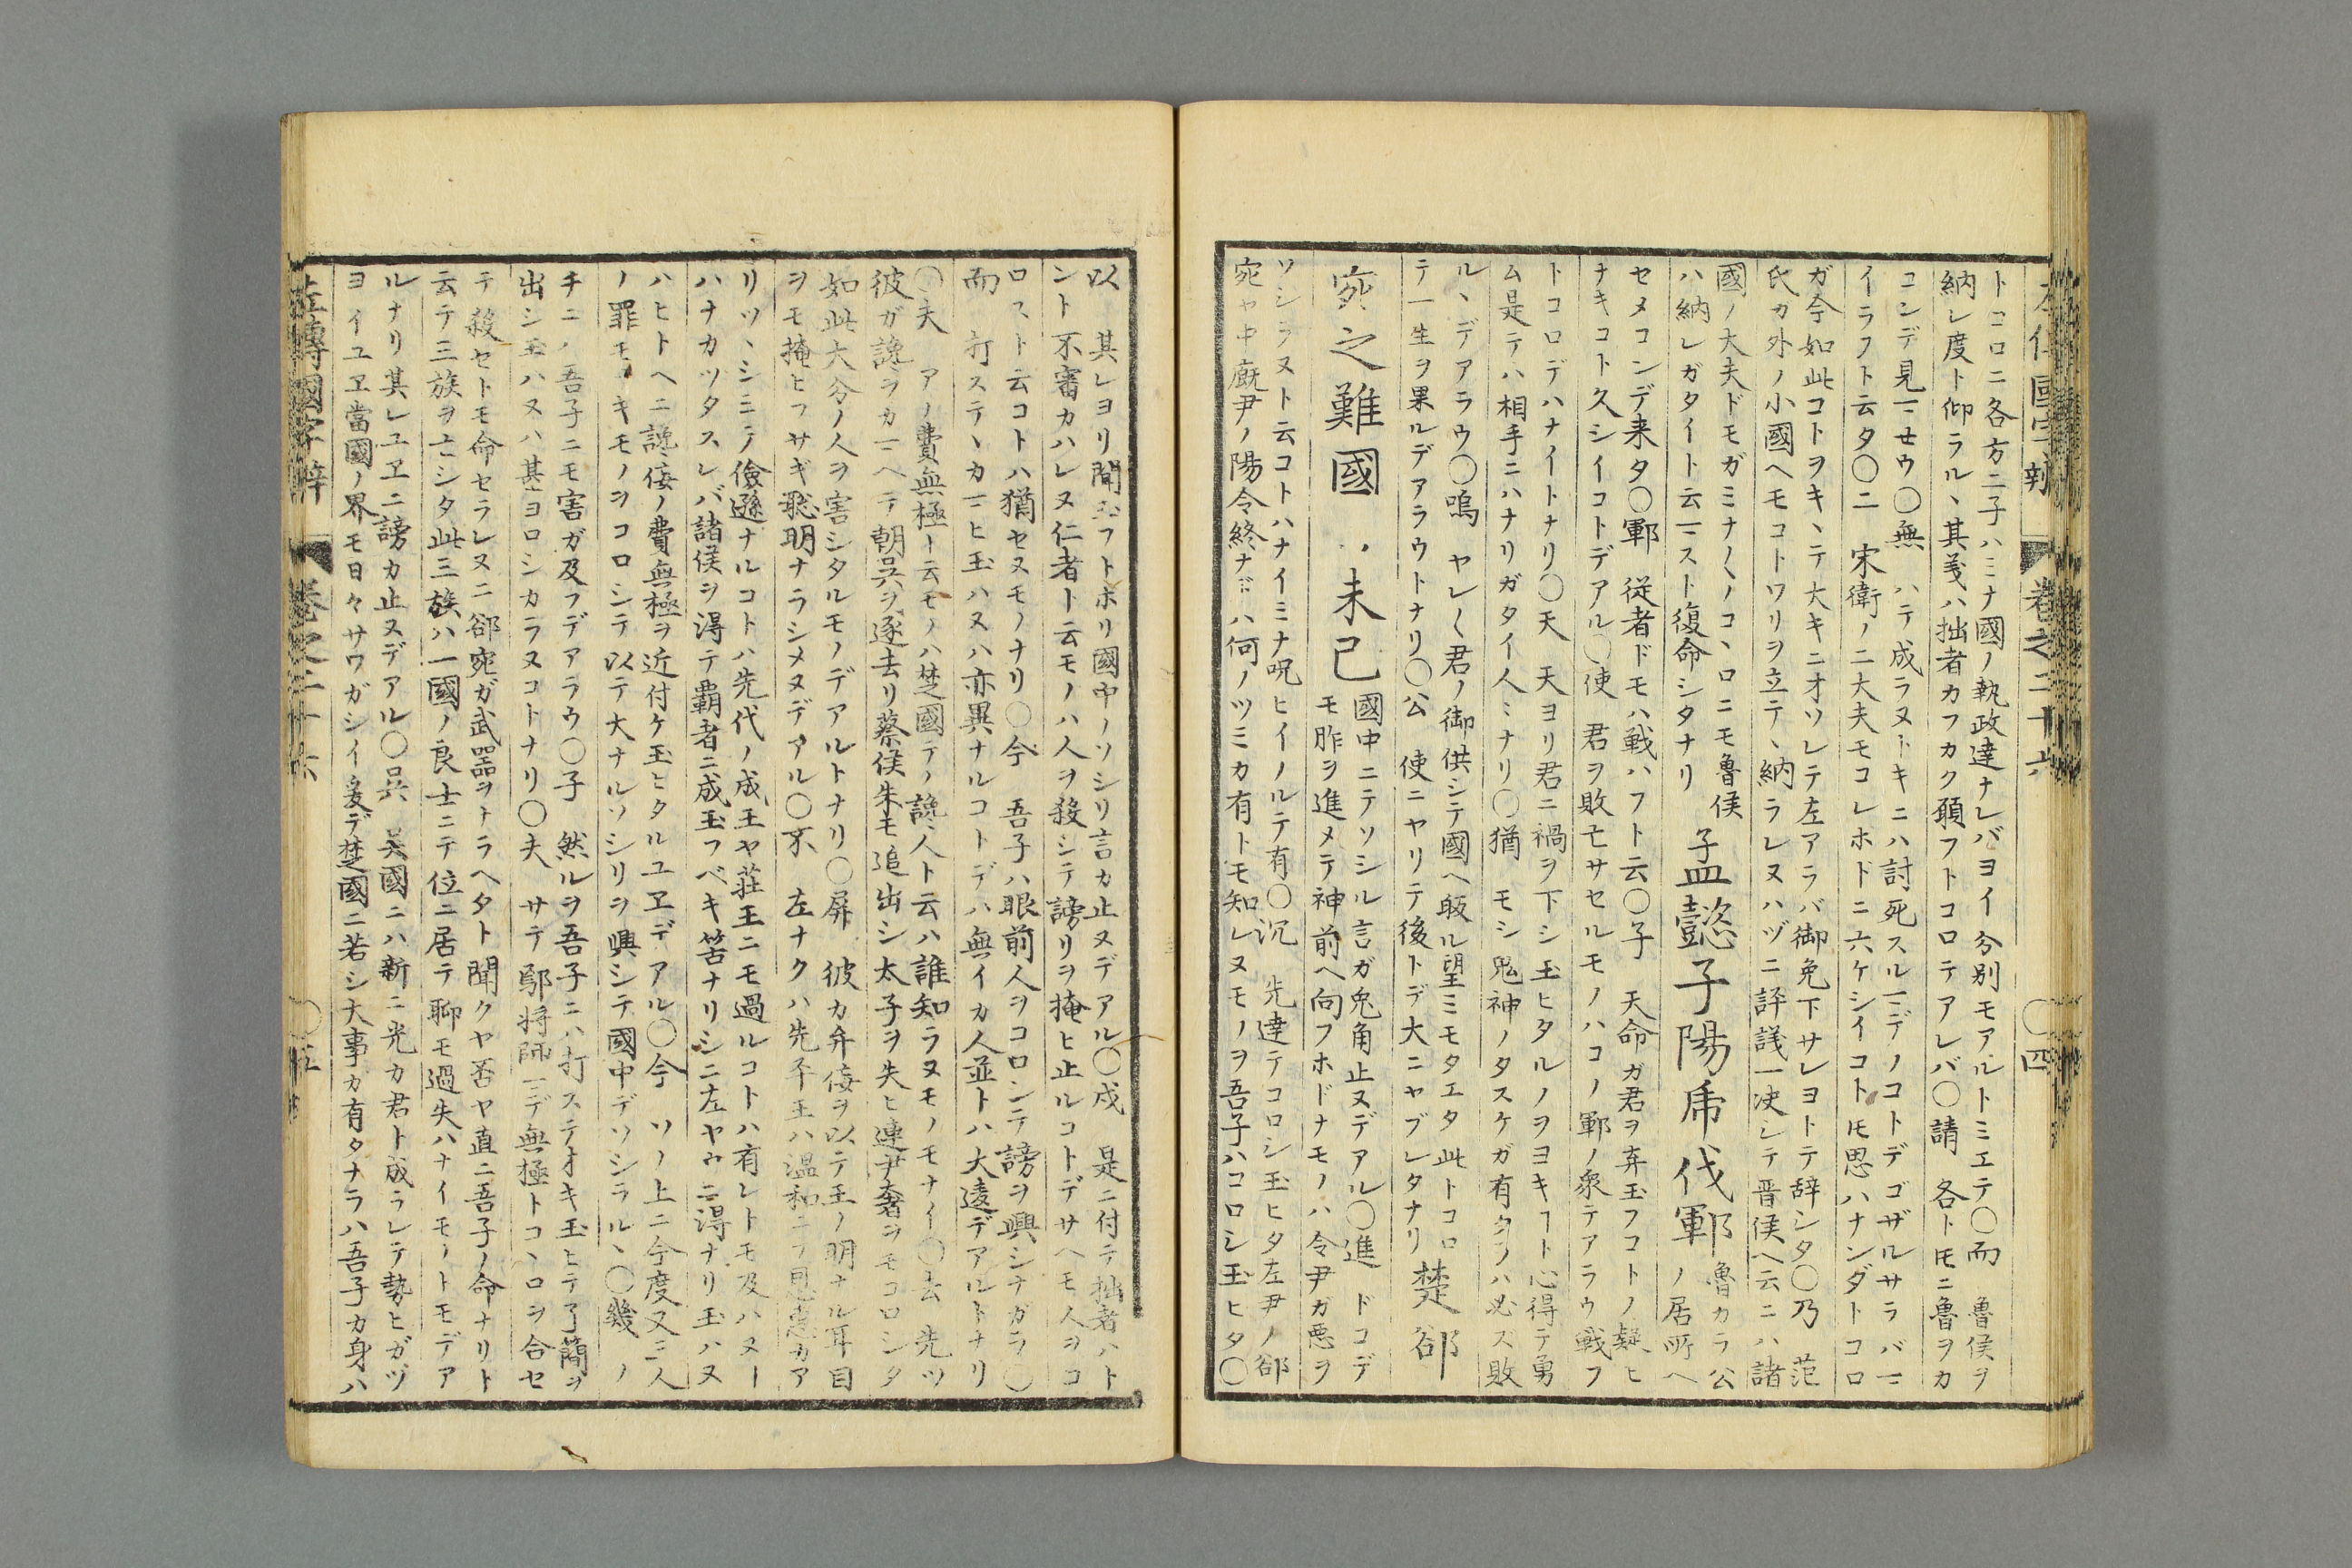 左傳國字辯 卷之二十六 〇四
トコロニ各方二子ハミナ國ノ執政達ナレバヨイ分別モアルトミエテ〇而 魯侯ヲ
納レ度ト仰ラル、其義ハ拙者カフカク願フトコロテアレバ〇請 各トモニ魯ヲカ
コンデ見マセウ〇無 ハテ成ラヌトキニハ討死スルマデノコトデゴザルサラバマ
イラフト云タ〇二 宋衛ノ二大夫モコレホドニ六ケシイコトモ思ハナンダトコロ
ガ今如此コトヲキ、テ大キニオソレテ左アラバ御免下サレヨトテ辞シタ〇乃 范
氏カ外ノ小國ヘモコトワリヲ立テ、納ラレヌハヅニ評議一决シテ晋侯ヘ云ニハ諸
國ノ大夫ドモガミナ〱ノコ、ロニモ魯侯
ハ納レガタイト云マスト復命シタナリ
孟懿子陽虎伐鄆
魯カラ公
ノ居所ヘ
セメコンデ来タ〇鄆 従者ドモハ戦ハフト云〇子 天命ガ君ヲ弃玉フコトノ疑ヒ
ナキコト久シイコトデアル〇使 君ヲ敗亡サセルモノハコノ鄆ノ衆テアラウ戦フ
トコロデハナイトナリ〇天 天ヨリ君ニ禍ヲ下シ玉ヒタルノヲヨキヿト心得テ勇
ム是テハ相手ニハナリガタイ人ミナリ〇猶 モシ鬼神ノタスケガ有タラハ必ズ敗
ル、デアラウ〇嗚 ヤレ〱君ノ御供シテ國ヘ皈ル望ミモタエタ此トコロ
テ一生ヲ果ルデアラウトナリ〇公 使ニヤリテ後トデ大ニヤブレタナリ
楚郤
宛之難國 未已
國中ニテソシル言ガ兎角止ヌデアル〇進 ドコデ
モ胙ヲ進メテ神前ヘ向フホドナモノハ令尹ガ悪ヲ
ソシラヌト云コトハナイミナ呪ヒイノルテ有〇沉 先達テコロシ玉ヒタ左尹ノ郤
宛ヤ中廐尹ノ陽令終ナドハ何ノツミカ有トモ知レヌモノヲ吾子ハコロシ玉ヒタ〇
以 其レヨリ聞玉フトホリ國中ノソシリ言カ止ヌデアル〇戍 是ニ付テ拙者ハト
ント不審カハレヌ仁者ト云モノハ人ヲ殺シテ謗リヲ掩ヒ止ルコトデサヘモ人ヲコ
ロスト云コトハ猶セヌモノナリ〇今 吾子ハ眼前人ヲコロンテ謗ヲ興シナガラ〇
而 打ステ、カマヒ玉ハヌハ亦異ナルコトデハ無イカ人並トハ大逺デアルトナリ
〇夫 アノ費無極ト云モノハ楚國テノ讒人ト云ハ誰知ラヌモノモナイ〇去 先ツ
彼ガ讒ヲカマヘテ朝呉ヲ逐去リ蔡侯朱モ追出シ太子ヲ失ヒ連尹奢ヲモコロシタ
如此大分ノ人ヲ害シタルモノデアルトナリ〇屏 彼カ弁佞ヲ以テ王ノ明ナル耳目
ヲモ掩ヒフサギ聡明ナラシメヌデアル〇不 左ナクハ先平王ハ温和ニテ恩恵カア
リツ、シミテ儉遜ナルコトハ先代ノ成王ヤ莊王ニモ過ルコトハ有レトモ及ハヌー
ハナカツタスレバ諸侯ヲ得テ覇者ニ成玉フベキ筈ナリシニ左ヤウニ得ナリ玉ハヌ
ハヒトヘニ讒佞ノ費無極ヲ近付ケ玉ヒタルユヱデアル〇今 ソノ上ニ今度又三人
ノ罪モナキモノヲコロシテ以テ大ナルソシリヲ興シテ國中デソシラル、〇幾 ノ
チニハ吾子ニモ害ガ及フデアラウ〇子 然ルヲ吾子ニハ打ステオキ玉ヒテ了簡ヲ
出シ玉ハヌハ甚ヨロシカラヌコトナリ〇夫 サテ鄢將師マデ無極トコ、ロヲ合セ
テ殺セトモ命セラレヌニ郤宛ガ武器ヲトラヘタト聞クヤ否ヤ直ニ吾子ノ命ナリト
云テ三族ヲ亡シタ此三族ハ一國ノ良士ニテ位ニ居テ聊モ過失ハナイモノトモデア
ルナリ其レユヱニ謗カ止ヌデアル〇呉 呉國ニハ新ニ光カ君ト成ラレテ勢ヒガツ
ヨイユヱ當國ノ界モ日々サワガシイ爰デ楚國ニ若シ大事カ有タナラハ吾子カ身ハ
左傳國字辯 卷之二十六 〇五